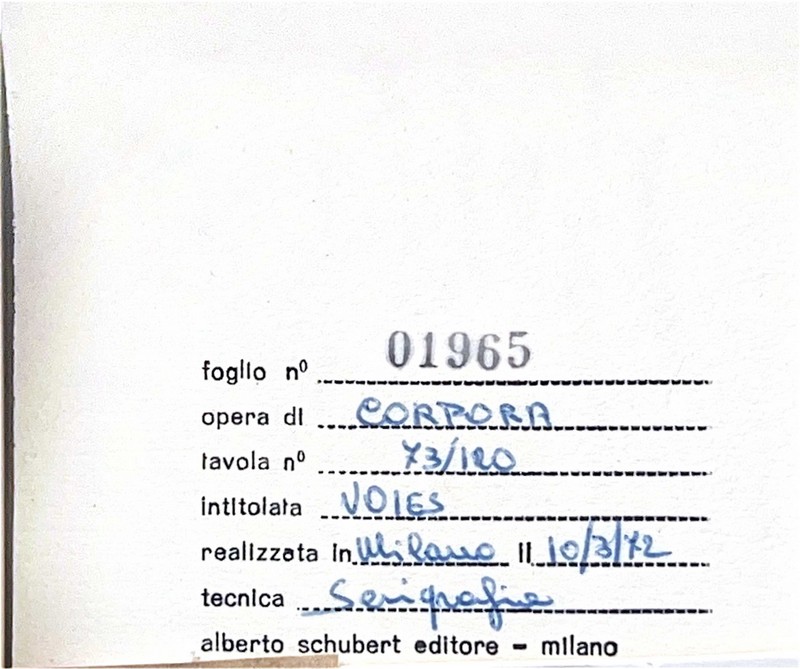 foglio nº 01965
opera di CORPORA
tavola nº 73/120
intitolata VOIES
realizzata in Milano il 10/3/72
tecnica Serigrafia
alberto schubert editore - milano